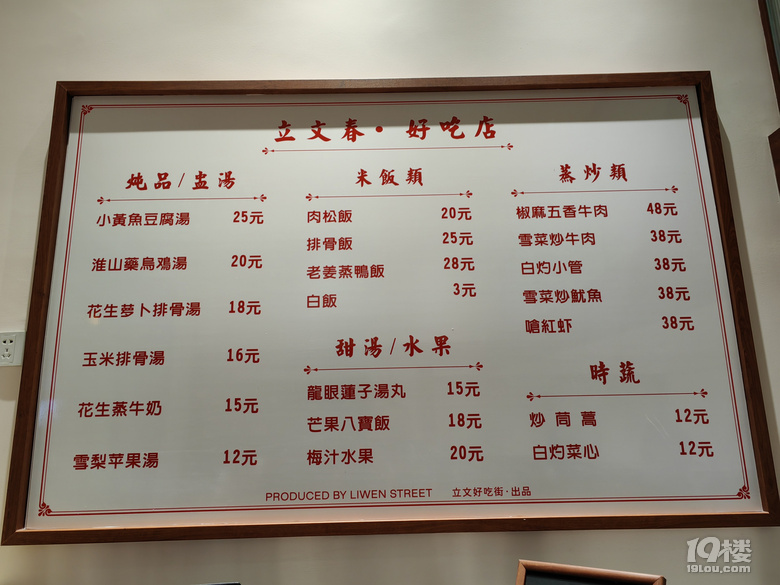 立文春·好吃店
炖品/盅湯
小黃魚豆腐湯 25元
淮山藥烏鴉湯 20元
花生萝卜排骨湯 18元
玉米排骨湯 16元
花生蒸牛奶 15元
雪梨苹果湯 12元
米飯類
肉松飯 20元
排骨飯 25元
老姜蒸鴨飯 28元
白飯 3元
甜湯/水果
龍眼蓮子湯丸 15元
芒果八寶飯 18元
梅汁水果 20元
蒸炒類
椒麻五香牛肉 48元
雪菜炒牛肉 38元
白灼小管 38元
雪菜炒魷魚 38元
嗆紅虾 38元
時蔬
炒茼蒿 12元
白灼菜心 12元
PRODUCED BY LIWEN STREET 立文好吃街·出品
19楼
19lou.com